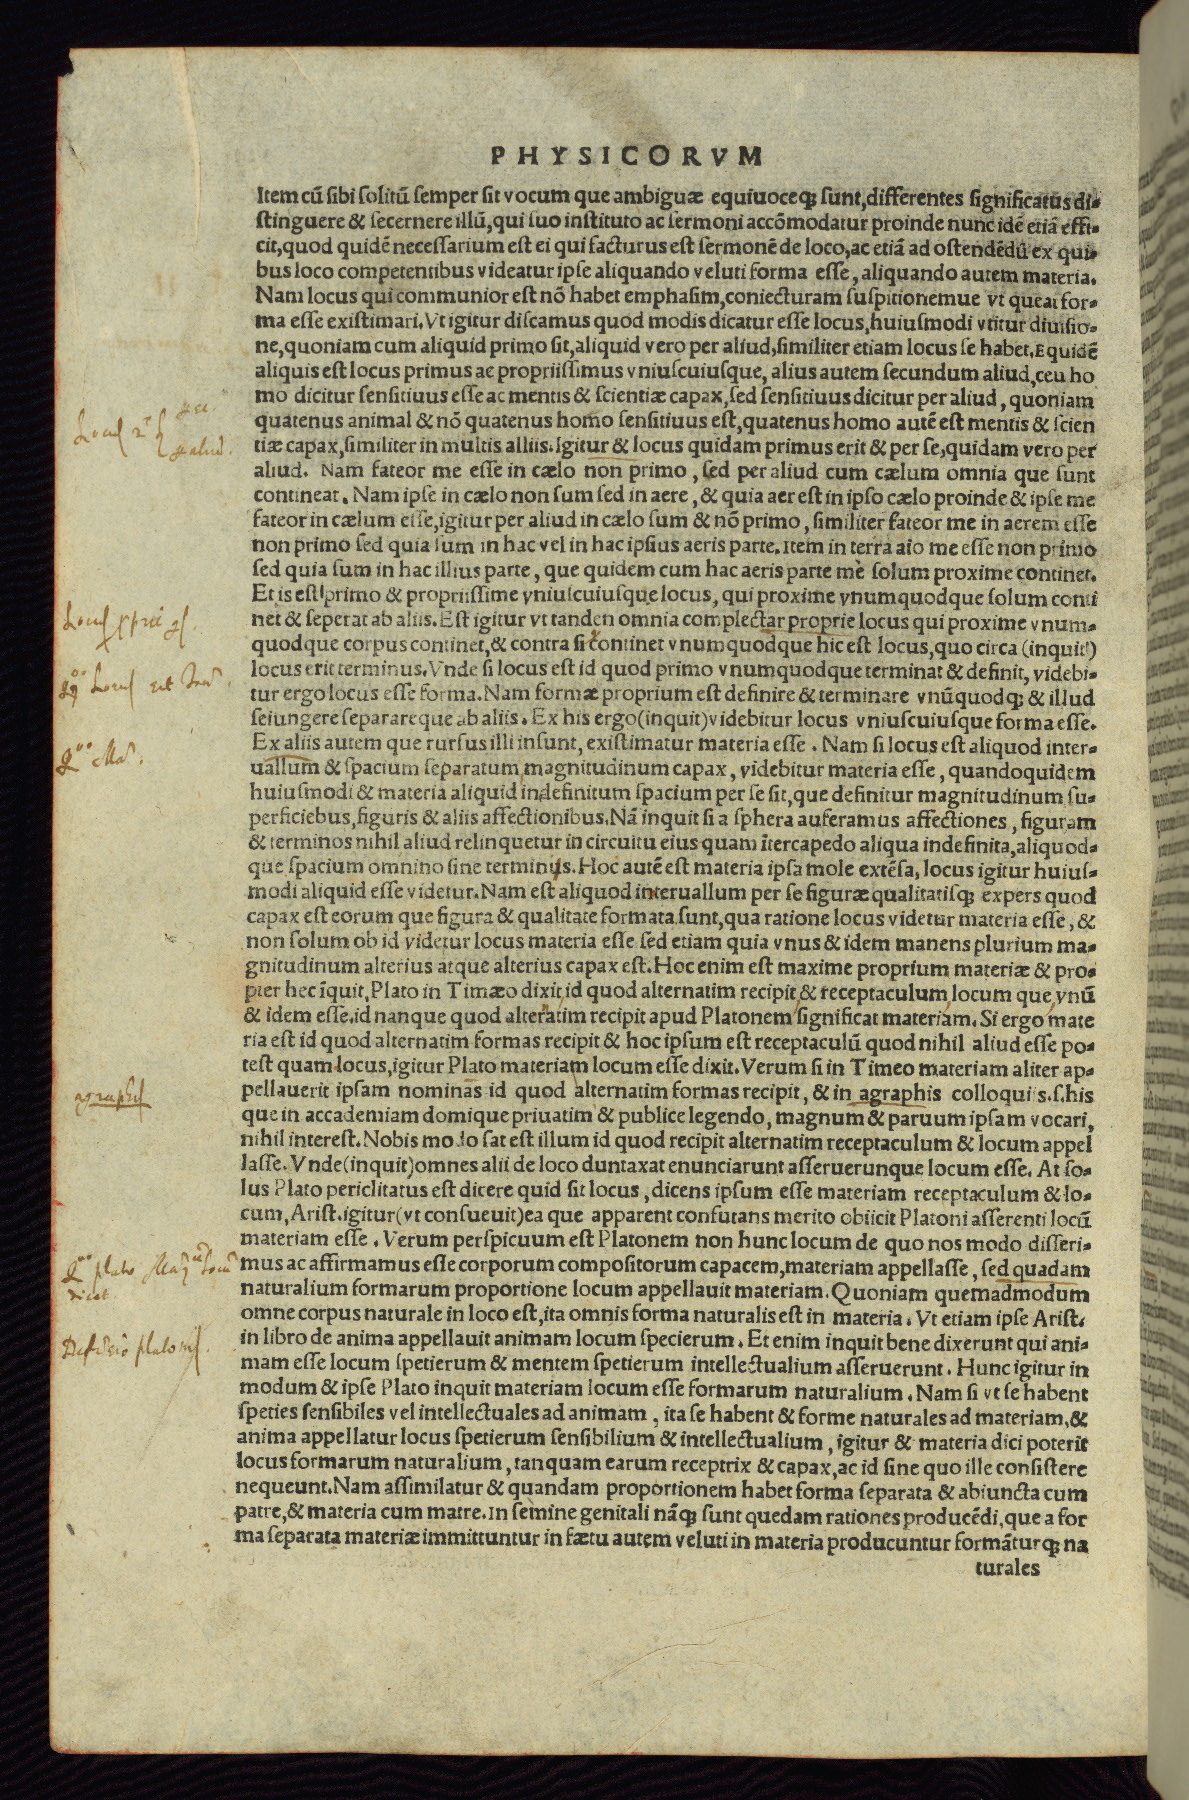 PHYSICORVM
Item cū sibi solitū semper sit vocum que ambiguæ equiuoceqꝫ sunt, differentes significatus di-
stinguere & secernere illū, qui suo instituto ac sermoni accōmodatur proinde nunc idē etiā effi-
cit, quod quidē necessarium est ei qui facturus est sermonē de loco, ac etiā ad ostendēdū ex qui-
bus loco competentibus videatur ipse aliquando veluti forma esse, aliquando autem materia.
Nam locus qui communior est nō habet emphasim, coniecturam suspitionemue vt queat for-
ma esse existimari. Vt igitur discamus quod modis dicatur esse locus, huiusmodi vtitur diuisio-
ne, quoniam cum aliquid primo sit, aliquid vero per aliud, similiter etiam locus se habet. Equidē
aliquis est locus primus ac propriissimus vniuscuiusque, alius autem secundum aliud, ceu ho
mo dicitur sensitiuus esse ac mentis & scientiæ capax, sed sensitiuus dicitur per aliud, quoniam
quatenus animal & nō quatenus homo sensitiuus est, quatenus homo autē est mentis & scien
Locus 2ˣ
tiæ capax, similiter in multis alliis. Igitur & locus quidam primus erit & per se, quidam vero per
aliud. Nam fateor me esse in cælo non primo, sed per aliud cum cælum omnia que sunt
contineat. Nam ipse in cælo non sum sed in aere, & quia aer est in ipso cælo proinde & ipse me
fateor in cælum esse, igitur per aliud in cælo sum & nō primo, similiter fateor me in aerem esse
non primo sed quia sum in hac vel in hac ipsius aeris parte. Item in terra aio me esse non primo
sed quia sum in hac illius parte, que quidem cum hac aeris parte me solum proxime continet.
Et is est primo & propriissime vniuscuiusque locus, qui proxime vnumquodque solum conti
net & seperat ab aliis. Est igitur vt tanden omnia complectar proprie locus qui proxime vnum-
quodque corpus continet, & contra si continet vnumquodque hic est locus, quo circa (inquit)
locus erit terminus. Vnde si locus est id quod primo vnumquodque terminat & definit, videbi-
tur ergo locus esse forma. Nam formæ proprium est definire & terminare vnūquodqꝫ & illud
seiungere separareque ab aliis. Ex his ergo (inquit) videbitur locus vniuscuiusque forma esse.
Ex aliis autem que rursus illi insunt, existimatur materia esse. Nam si locus est aliquod inter-
uallum & spacium separatum magnitudinum capax, videbitur materia esse, quandoquidem
huiusmodi & materia aliquid indefinitum spacium per se sit, que definitur magnitudinum su-
perficiebus, figuris & aliis affectionibus. Nā inquit si a sphera auferamus affectiones, figuram
& terminos nihil aliud relinquetur in circuitu eius quam ītercapedo aliqua indefinita, aliquod-
que spacium omnino sine terminis. Hoc autē est materia ipsa mole extēsa, locus igitur huius-
modi aliquid esse videtur. Nam est aliquod interuallum per se figuræ qualitatisqꝫ expers quod
capax est eorum que figura & qualitate formata sunt, qua ratione locus videtur materia esse, &
non solum ob id videtur locus materia esse sed etiam quia vnus & idem manens plurium ma-
gnitudinum alterius atque alterius capax est. Hoc enim est maxime proprium materiæ & pro-
pter hec īquit, Plato in Timæo dixit id quod alternatim recipit & receptaculum locum que vnū
& idem esse. id nanque quod alteratim recipit apud Platonem significat materiam. Si ergo mate
ria est id quod alternatim formas recipit & hoc ipsum est receptaculū quod nihil aliud esse po-
test quam locus, igitur Plato materiam locum esse dixit. Verum si in Timeo materiam aliter ap-
pellauerit ipsam nominās id quod alternatim formas recipit, & in agraphis colloquiis. s. his
agraphis
que in accademiam domique priuatim & publice legendo, magnum & paruum ipsam vocari,
nihil interest. Nobis modo sat est illum id quod recipit alternatim receptaculum & locum appel
lasse. Vnde (inquit) omnes alii de loco duntaxat enunciarunt asseruerunque locum esse. At so-
lus Plato periclitatus est dicere quid sit locus, dicens ipsum esse materiam receptaculum & lo-
cum, Arist. igitur (vt consueuit) ea que apparent confutans merito obiicit Platoni asserenti locū
materiam esse. Verum perspicuum est Platonem non hunc locum de quo nos modo disseri-
mus ac affirmamus esse corporum compositorum capacem, materiam appellasse, sed quadam
naturalium formarum proportione locum appellauit materiam. Quoniam quemadmodum
omne corpus naturale in loco est, ita omnis forma naturalis est in materia. Vt etiam ipse Arist.
in libro de anima appellauit animam locum specierum. Et enim inquit bene dixerunt qui ani-
mam esse locum spetierum & mentem spetierum intellectualium asseruerunt. Hunc igitur in
modum & ipse Plato inquit materiam locum esse formarum naturalium. Nam si vt se habent
speties sensibiles vel intellectuales ad animam, ita se habent & forme naturales ad materiam, &
anima appellatur locus spetierum sensibilium & intellectualium, igitur & materia dici poterit
locus formarum naturalium, tanquam earum receptrix & capax, ac id sine quo ille consistere
nequeunt. Nam assimilatur & quandam proportionem habet forma separata & abiuncta cum
patre, & materia cum matre. In semine genitali nāqꝫ sunt quedam rationes producēdi, que a for
ma separata materiæ immittuntur in fætu autem veluti in materia producuntur formāturqꝫ na
turales